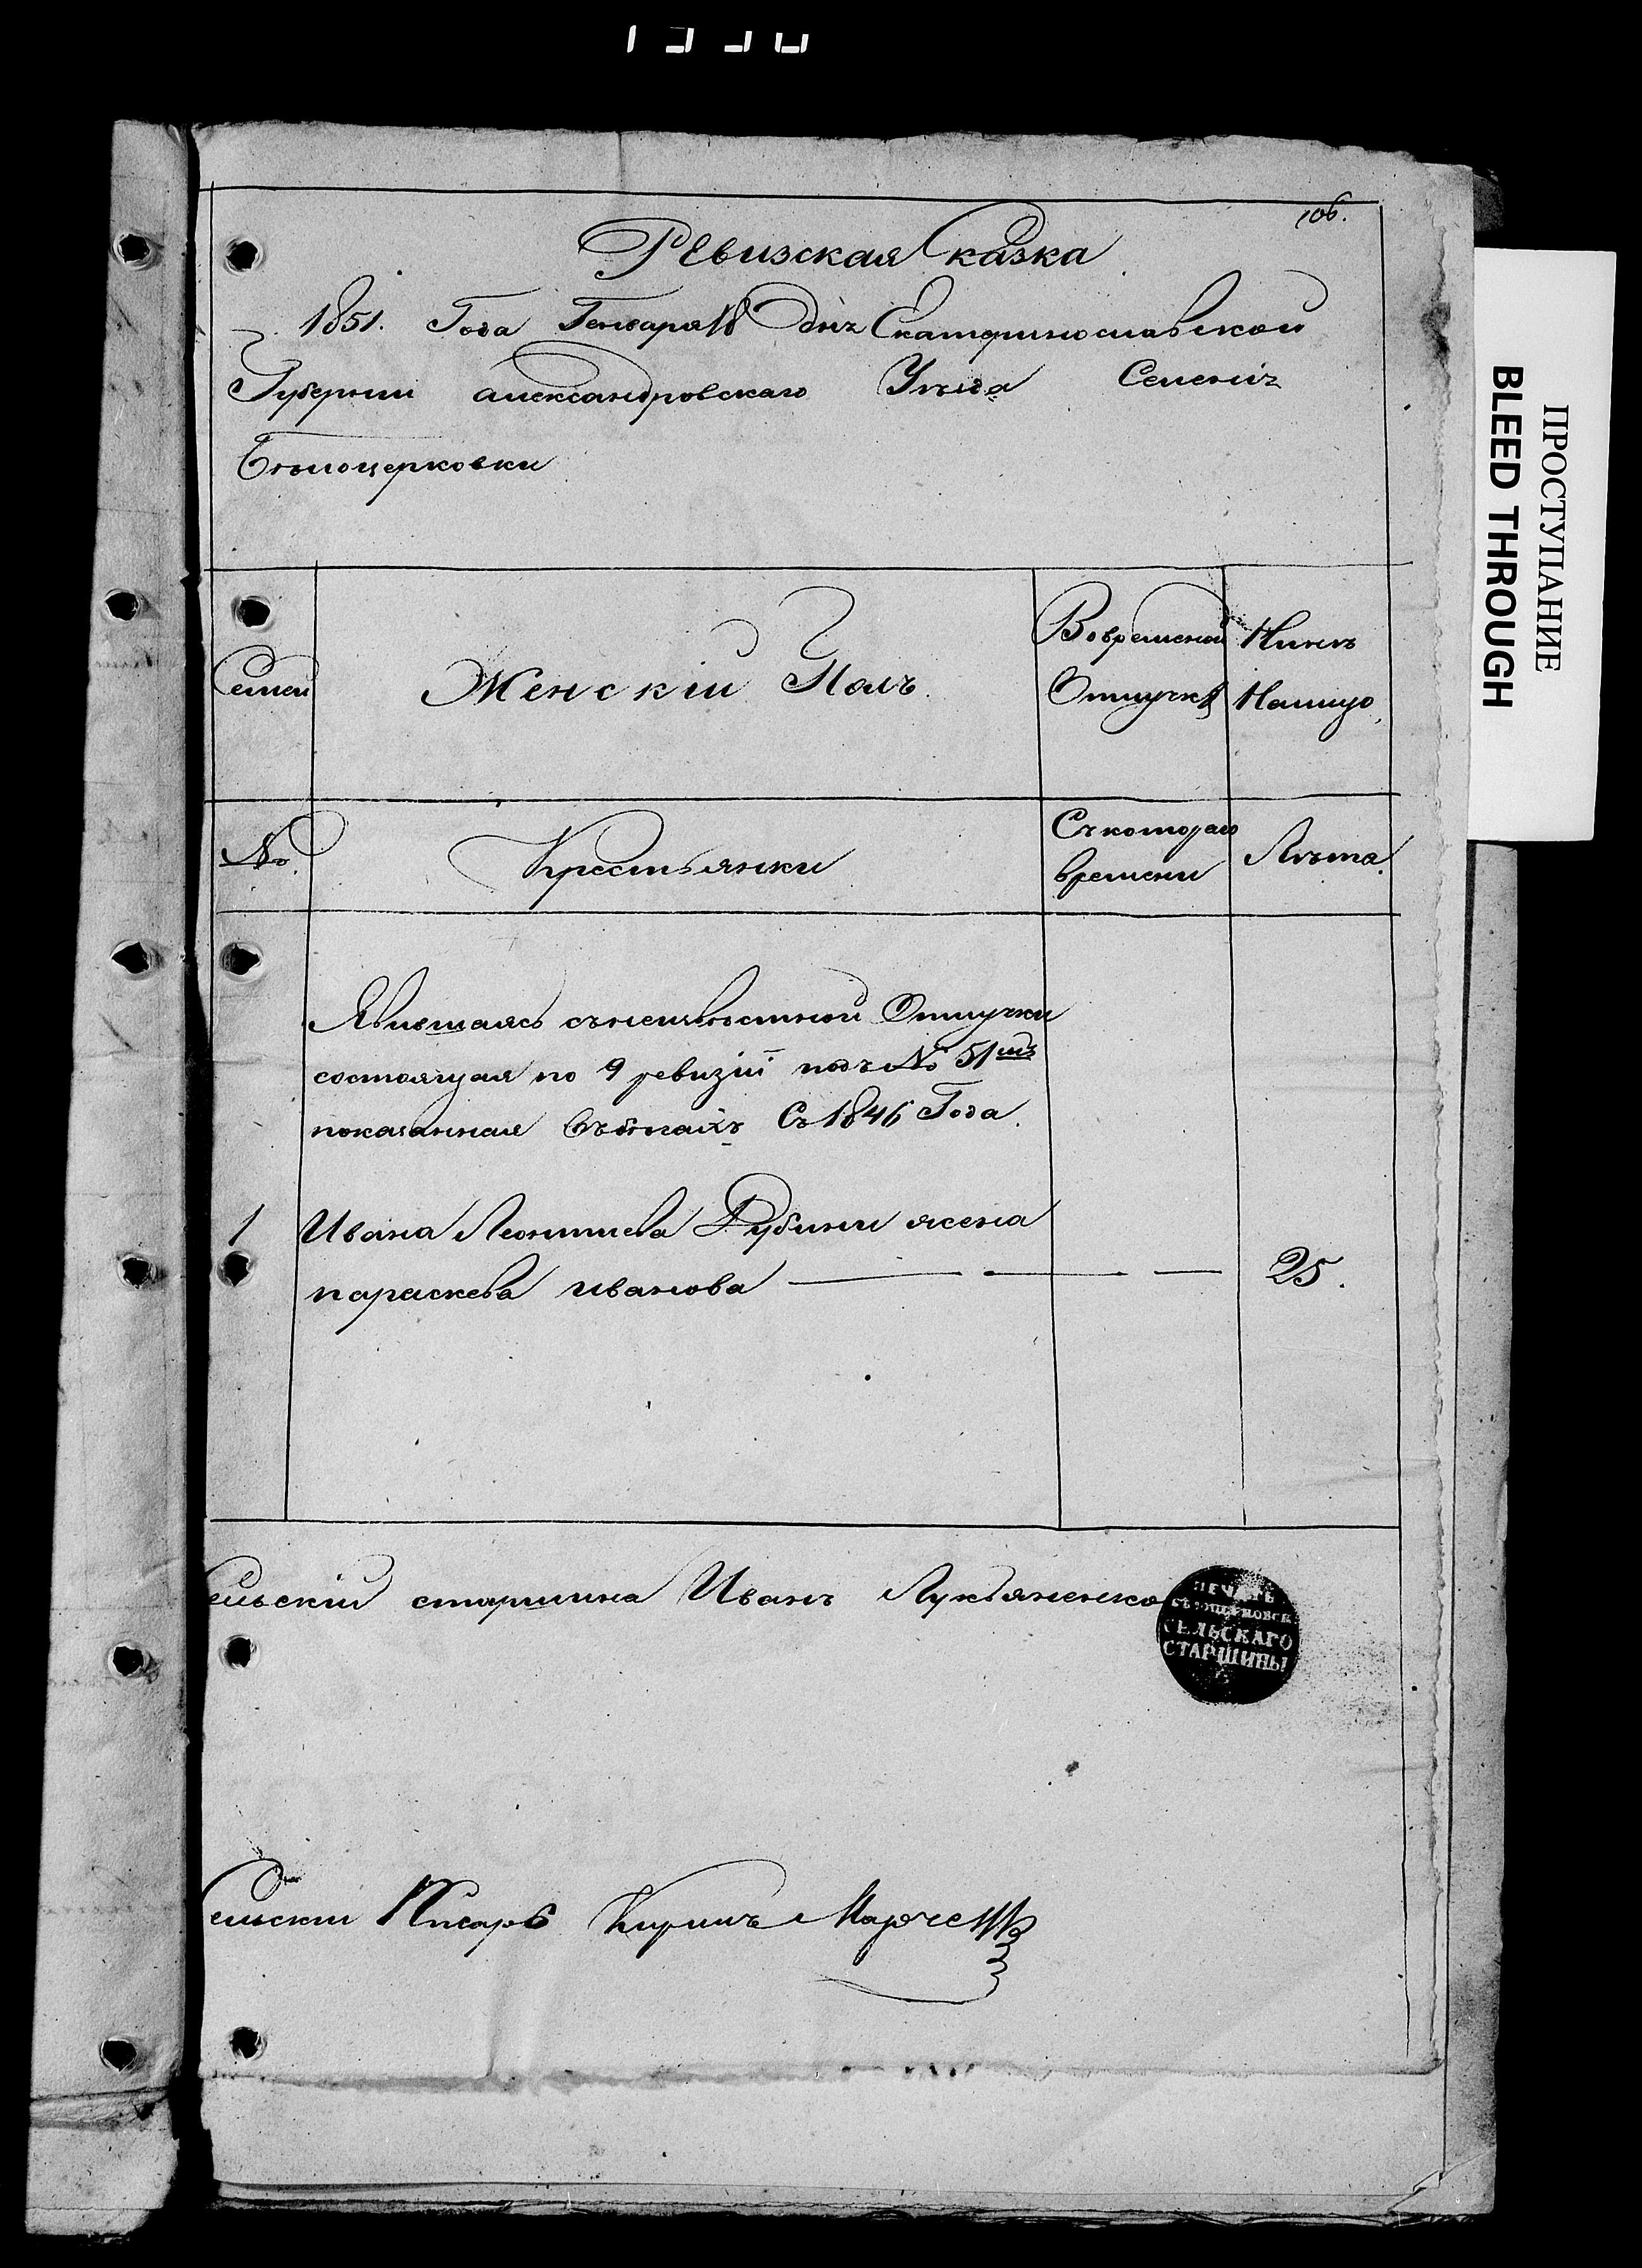 106.
Ревизская сказка
1851. Года Генваря 18 дня Екатеринославской
Губернии александровского Уезда Селения
Бѣлоцерковки
Семей
Женскій Полъ.
Вовременной
Отлучкѣ
Нинѣ
Налицо
№
Крестьянки
Съкотораго
времени
Лѣта.
Явившаясь съ неизвѣстной Отлучки
состоящая по 9 ревизіи подъ № 51мъ
показанная въбѣгахъ Съ 1846 Года.
1
Ивана Леонтиева жена
параскева иванова
25.
Сельскій старшина Иванъ Лукьяненко
ПЕЧАТЬ
СЕЛЬСКАГО
СТАРШИНЫ
Сельскій Писарь Кирилъ
ПРОСТУПАНИЕ
BLEED THROUGH